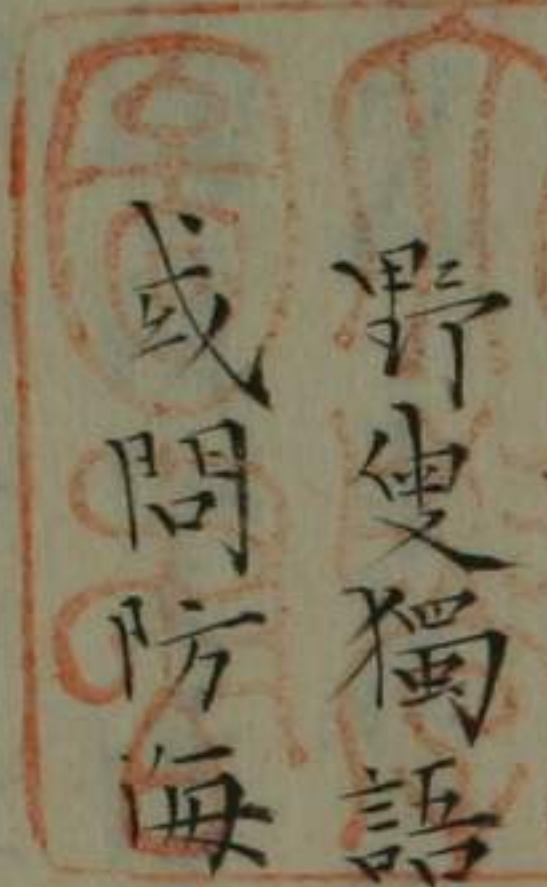 野叟獨語
或問防海